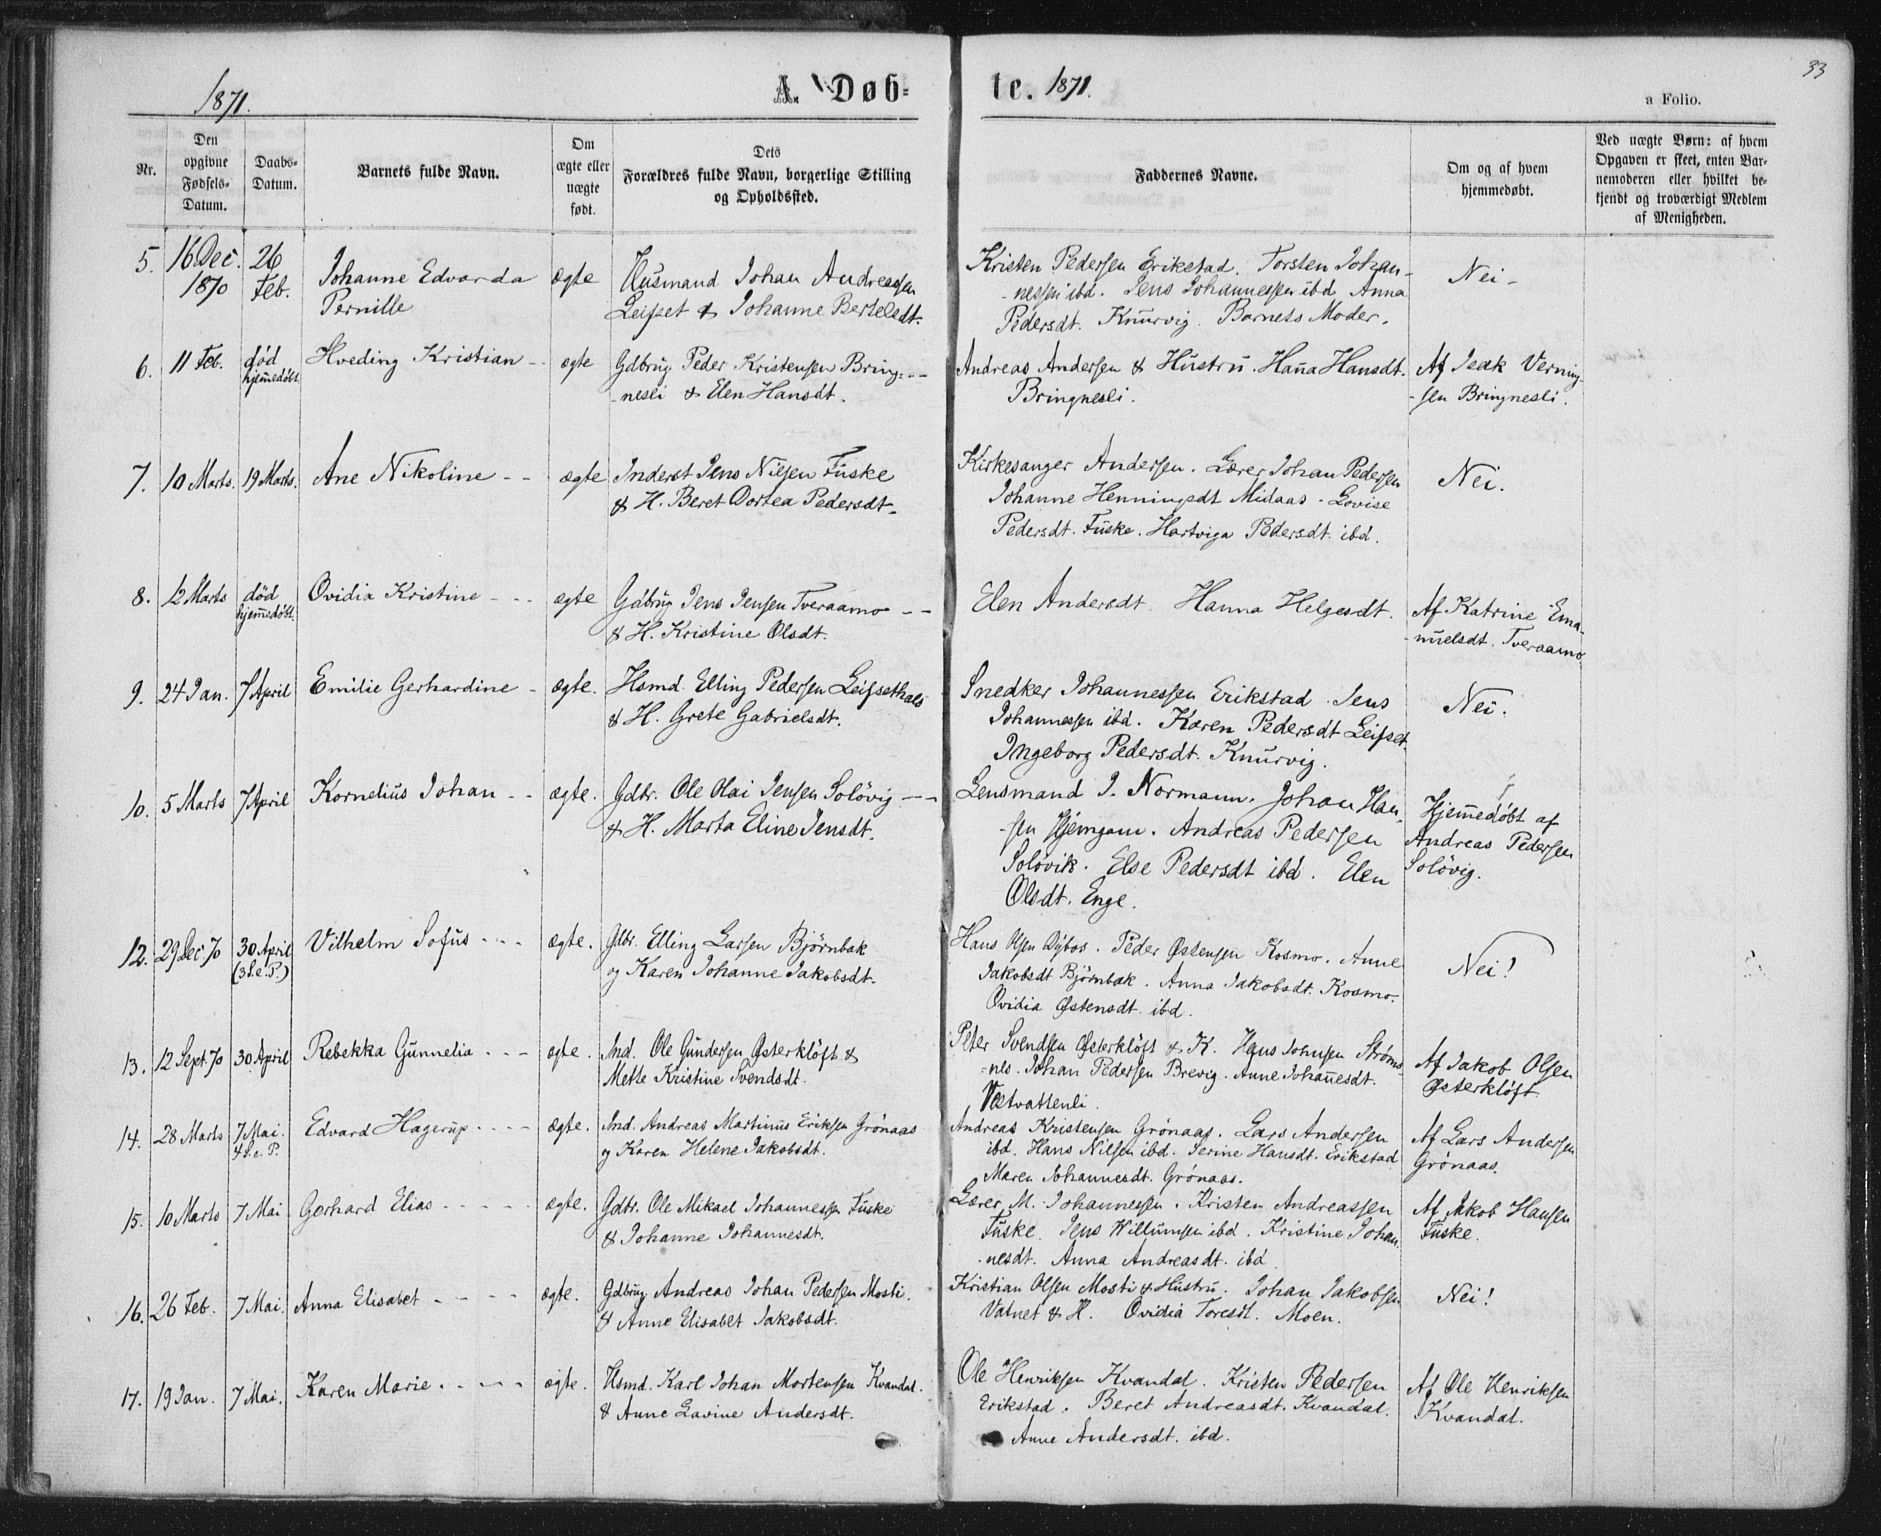 1871. A. Døb- te. 1871. 33
a Folio.
Nr. Den opgivne Fødsels-Datum. Daabs-Datum. Barnets fulde Navn. Om ægte eller uægte født. Dets Forældres fulde Navn, borgerlige Stilling og Opholdssted. Faddernes Navne. Om og af hvem hjemmedøbt. Ved uægte Børn: af hvem Opgaven er skeet, enten Barnemoderen eller hvilket bekjendt og troværdigt Medlem af Menigheden.
5. 16 Dec. 26 Johanne Edvarda ægte Husmand Johan Andreassen Kristen Pedersen Erikstad. Torsten Johan- Nei -
1870 Feb. Pernille Leifset & Johanne Bertelsdt. -nessen ibd. Jens Johannessen ibd Anna
Pedersdt. Knurvig. Barnets Moder.
6. 11 Feb. død Hveding Kristian - ægte Gdbrug Peder Kristensen Bring- Andreas Andersen & Hustru. Hanna Hansdt. Af Isak Verning-
hjemmedøbt -nesli & Elen Hansdt. Bringnesli. -sen Bringnesli.
7. 10 Marts. 19 Marts. Ane Nikoline - - ægte Inderst Jens Nilsen Fuske Kirkesanger Andersen. Lærer Johan Pedersen Nei.
& H. Beret Dortea Pedersdt. Johanne Henningsdt Midaas. Lovise
Pedersdt. Fuske. Hartviga Pedersdt. ibd.
8. 12 Marts død Ovidia Kristine - - - ægte Gdbrug Jens Jensen Tveraamo - - Elen Andersdt. Hanna Helgesdt. Af Katrine Ema-
hjemmedøbt. & H. Kristine Olsdt. -nuelsdt. Tveraamo
9. 24 Jan. 7 April Emilie Gerhardine - ægte. Hsmd. Elling Pedersen Leifsethals Snedker Johannessen Erikstad. Jens Nei.
& H. Grete Gabrielsdt. Johannessen ibd. Karen Pedersdt Leifset.
Ingeborg Pedersdt. Knurvig.
10. 5 Marts 7 April Kornelius Johan - - ægte. Gdbr. Ole Olai Jensen Soløvig - - Lensmand J. Normann. Johan Han- Hjemmedøbt af
& H. Marta Eline Jensdt. -sen Hjemgam. Andreas Pedersen Andreas Pedersen
Soløvik. Else Pedersdt ibd. Elen Soløvig.
Olsdt. Enge.
12. 29 Dec 70 30 April Vilhelm Sofus - - - ægte. Gdbr. Elling Larsen Bjørnbak Hans Olsen Dybos. Peder Østensen Kosmo. Anne Nei!
(3 S. e. P.) og Karen Johanne Jakobsdt. Jakobsdt Bjørnbak. Anna Jakobsdt. Kosmo.
Ovidia Østensdt. ibd.
13. 12 Sept. 70 30 April Rebekka Gunnelia - - - ægte. Ind. Ole Gundersen Østerkløft & Peter Svendsen Østerkløft & K. Hans Johnsen Strøms- Af Jakob Olsen
Mette Kristine Svendsdt. -nes. Johan Pedersen Brevig. Anne Johannesdt. Østerkløft
Vetvattenli.
14. 28 Marts 7 Mai. Edvard Hagerup - - - - ægte. Ind. Andreas Martinus Eriksen Grønaas Andreas Kristensen Grønaas. Lars Andersen Af Lars Andersen
4 S. e. P. og Karen Helene Jakobsdt. ibd. Hans Nilsen ibd. Serine Hansdt. Erikstad Grønaas.
Maren Johannesdt. Grønaas.
15. 10 Marts 7 Mai Gerhard Elias - - - - - ægte. Gdbr. Ole Mikael Johannessen Fuske Lærer M. Johannessen. Kristen Andreassen Af Jakob Hansen
& Johanne Johannesdt. Fuske. Jens Willumsen ibd. Kristine Johan- Fuske.
-nesdt. Anna Andreasdt. ibd.
16. 26 Feb. 7 Mai. Anna Elisabet - - - - ægte. Gdbrug Andreas Johan Pedersen Mosti. Kristian Olsen Mosti & Hustru. Johan Jakobsen Nei!
& Anne Elisabet Jakobsdt. Vatnet & H. Ovidia Toresdt. Moen.
17. 19 Jan. 7 Mai. Karen Marie - - - - ægte. Hsmd. Karl Johan Mortensen Kvandal. Ole Henriksen Kvandal. Kristen Pedersen Af Ole Henriksen
& Anne Lavine Andersdt. Erikstad. Beret Andreasdt. Kvandal. Kvandal.
Anne Andersdt. ibd.